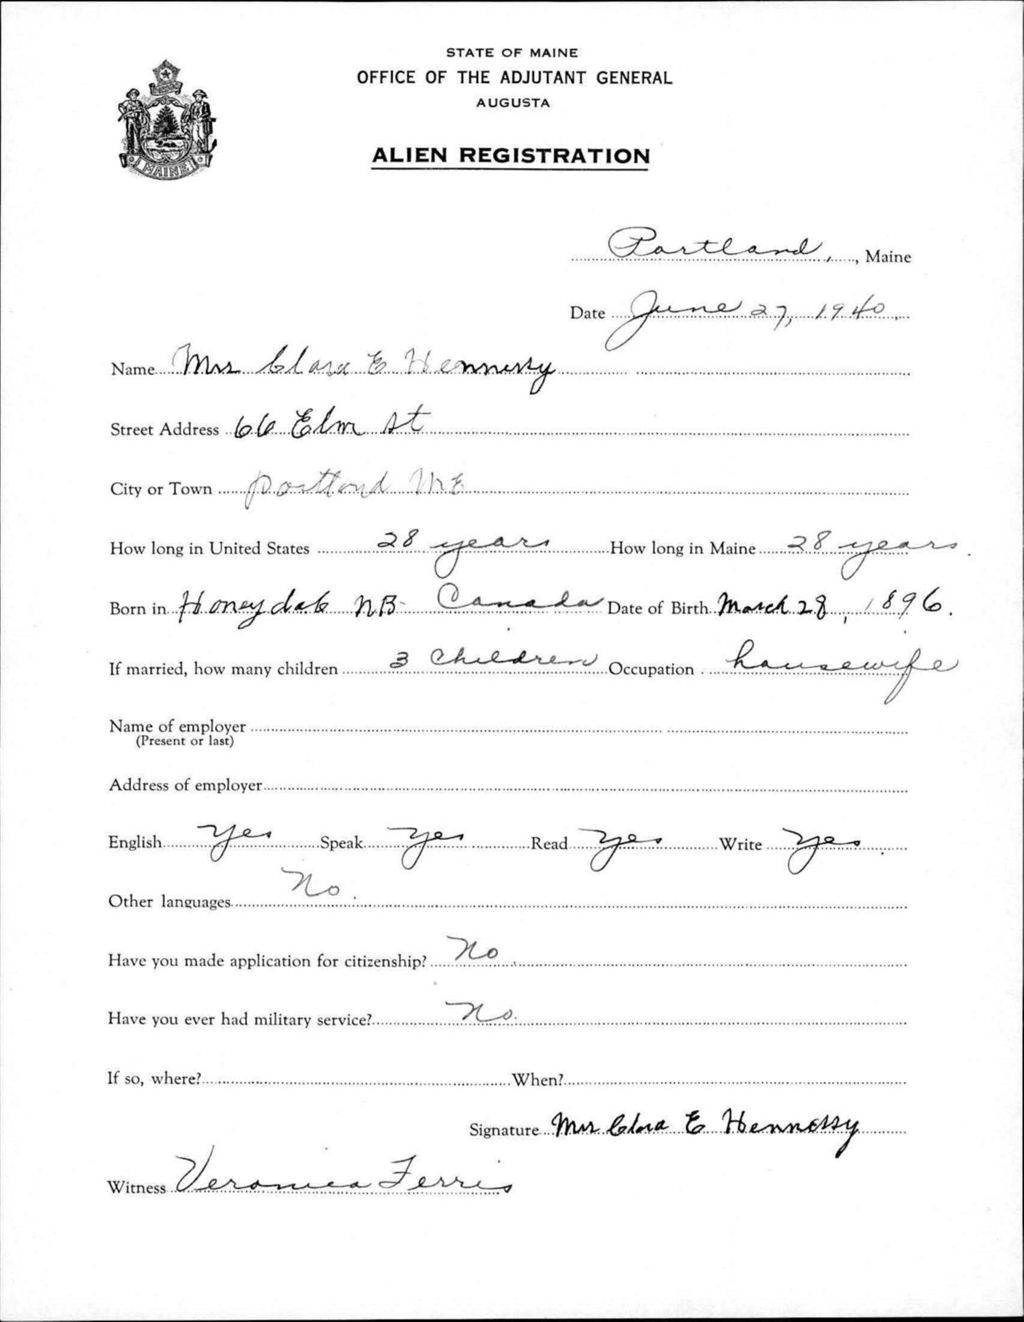 STATE OF MAINE
OFFICE OF THE ADJUTANT GENERAL
AUGUSTA
ALIEN REGISTRATION
MAINE
Portland, Maine
Date June 27, 1940
Name Mrs Clara E Hennessy
Street Address 66 Elm St
City or Town Portland ME
How long in United States 28 years How long in Maine 28 years
Born in Honeydale NB- Canada Date of Birth March 28, 1896.
If married, how many children 3 children Occupation housewife
Name of employer
(Present or last)
Address of employer
English yes Speak yes Read yes Write yes
Other languages No
Have you made application for citizenship? No
Have you ever had military service? No
If so, where? When?
Signature Mrs Clara E Hennessy
Witness Veronica Ferris